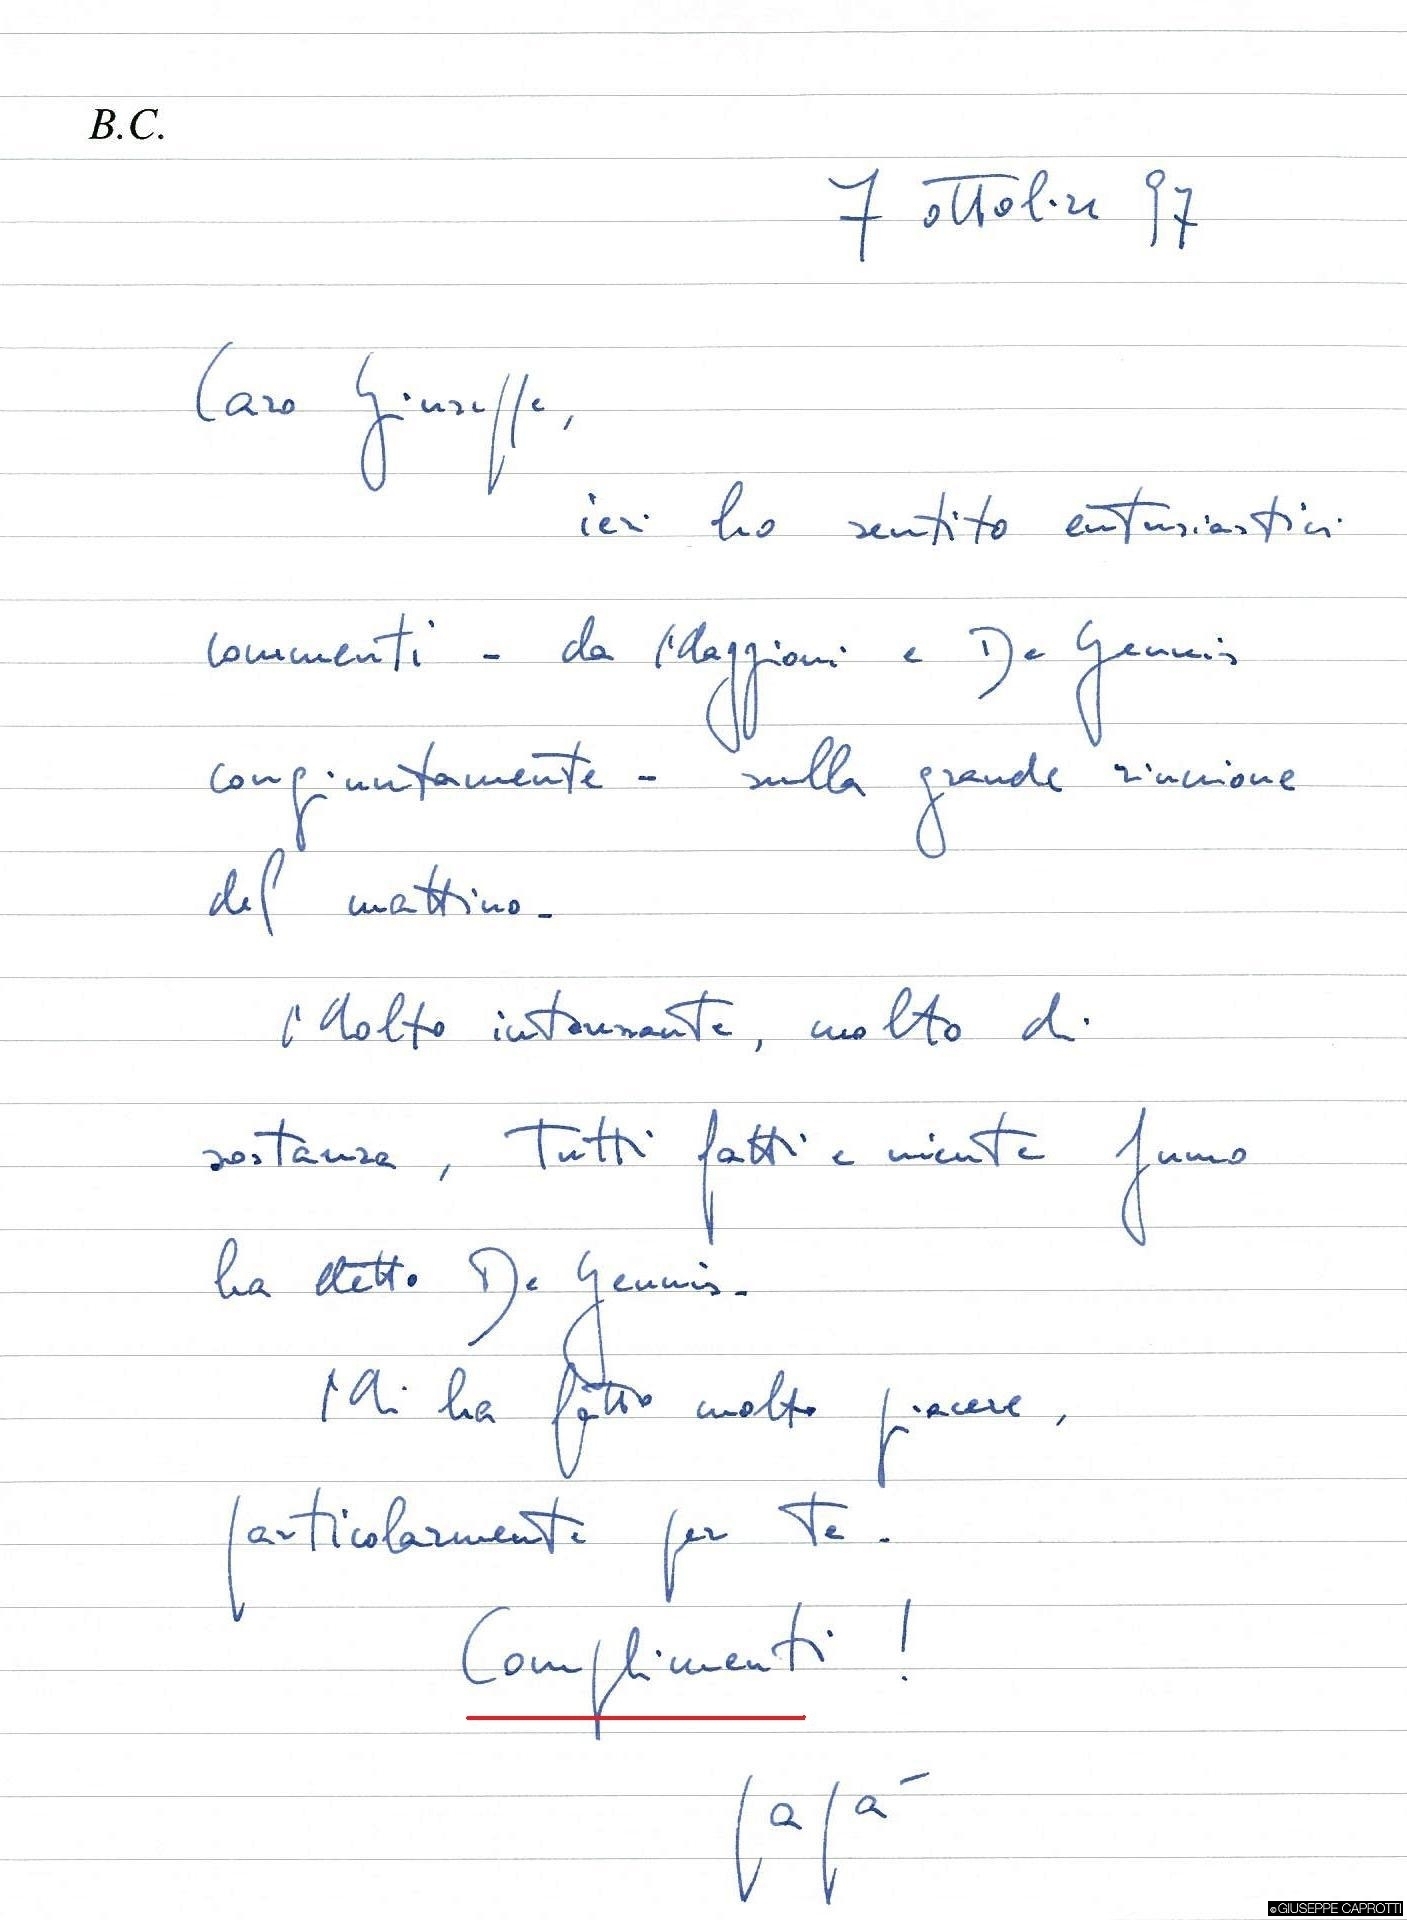 B.C.
7 ottobre 97
Caro Giuseppe,
ieri ho sentito entusiastici
commenti - da Maggioni e De Gennis
congiuntamente - sulla grande riunione
del mattino -
Molto interessante, molto di
sostanza, Tutti fatti e niente fumo
ha detto De Gennis -
Mi ha fatto molto piacere,
particolarmente per Te.
Complimenti !
papà
©GIUSEPPE CAPROTTI